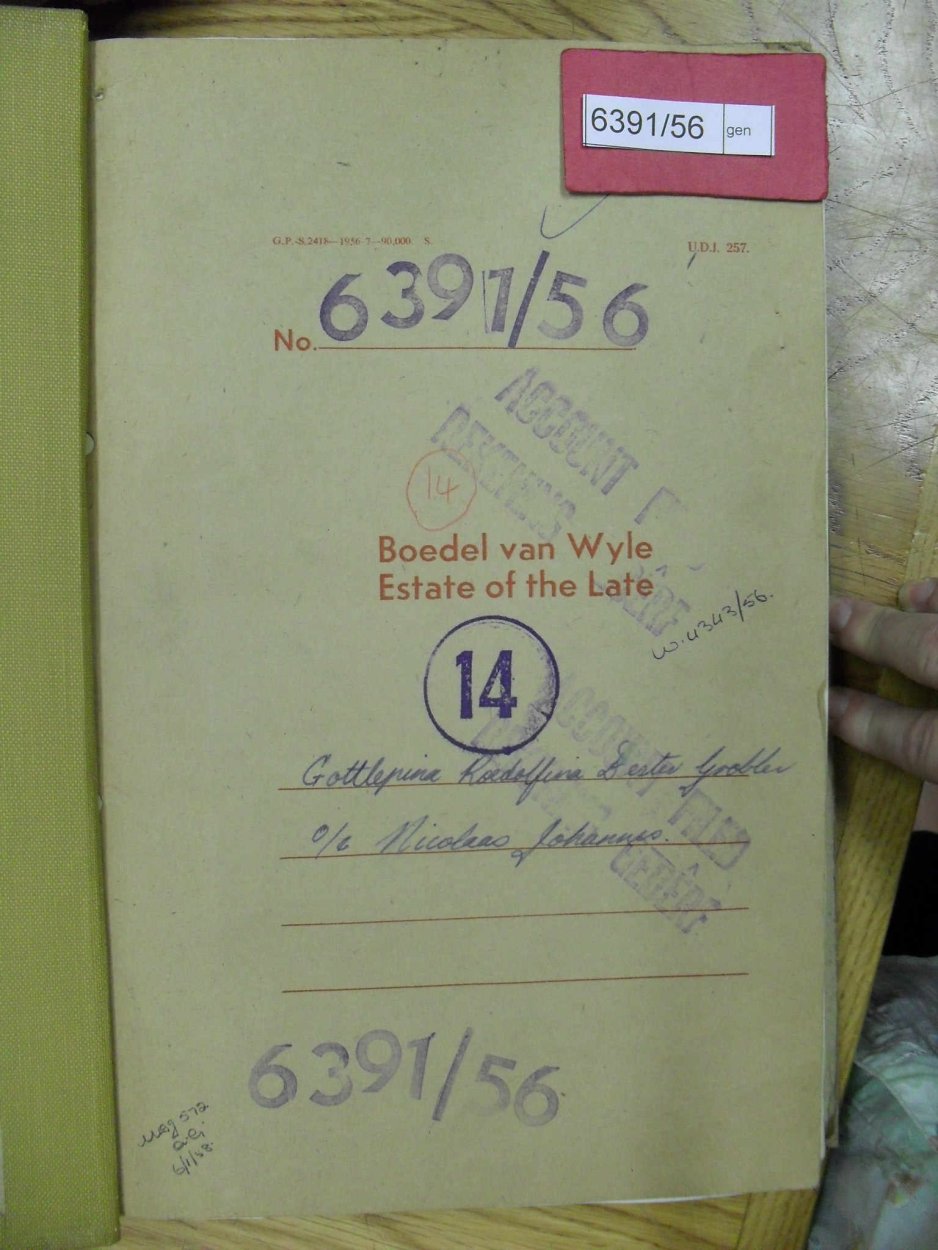 6391/56 gen
G.P.-S.2418—1956-7—90,000. S.
U.D.J. 257.
No. 6391/56
ACCOUNT
REKENING
14
Boedel van Wyle
Estate of the Late
GEDÊRF
W. 4343/56.
14
ACCOUNT FILED
GEDÊRF
Gottlepina Roedolfina Bester Grobler
Nicolaas Johannes.
6391/56
6/1/58